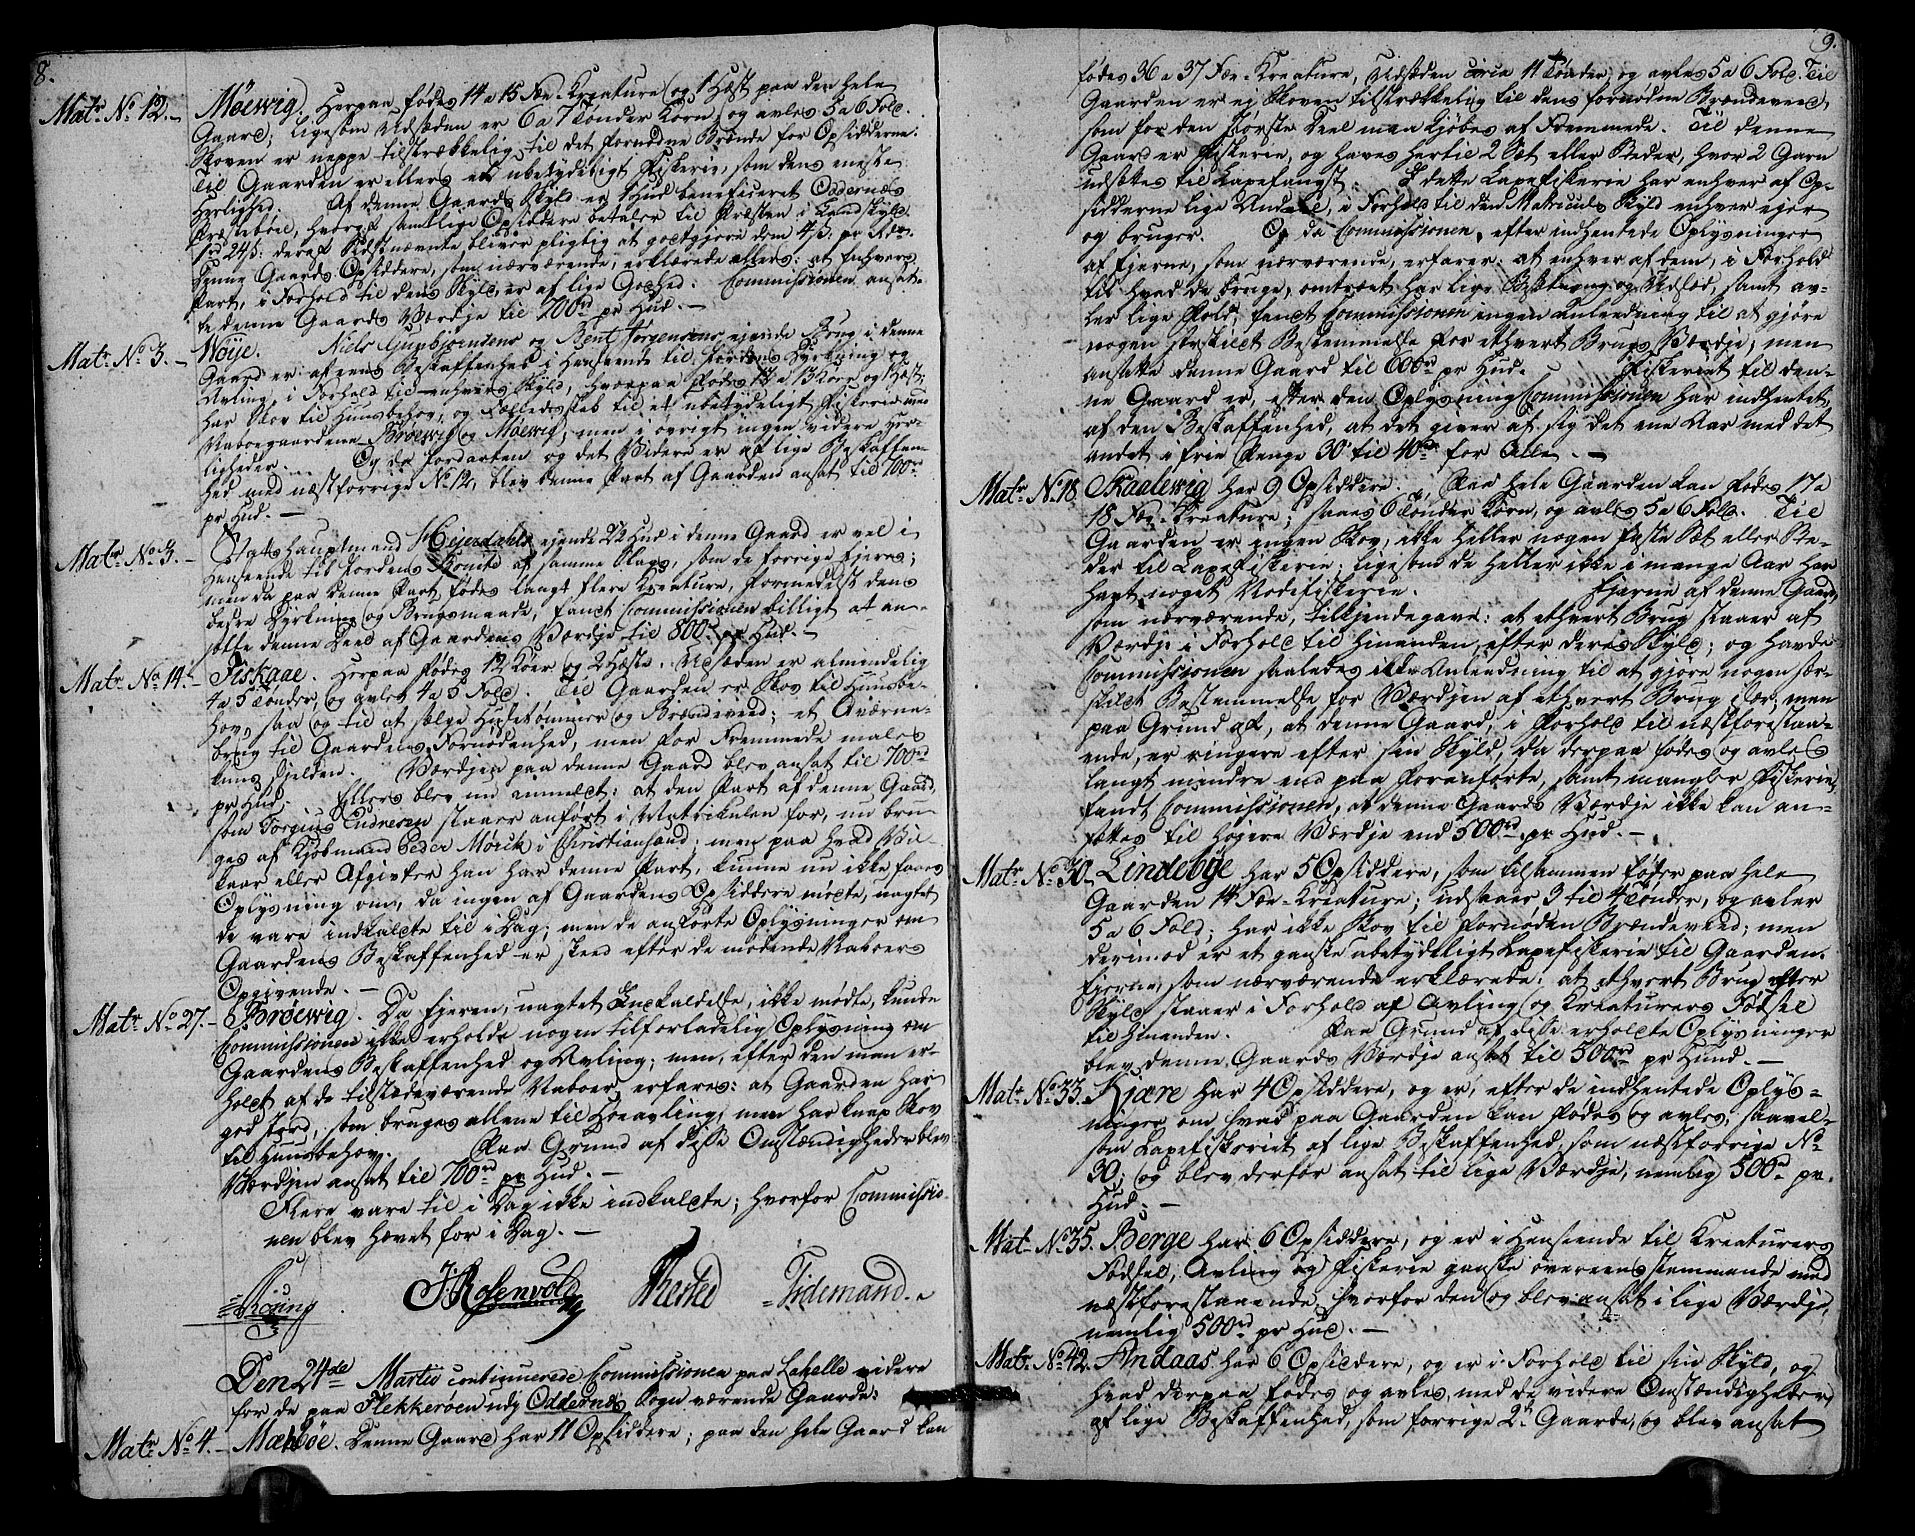 8.
Matr. No. 12. – Møewig. Herpaa fødes 14 a 15 Fæ-Kreature og 1 Hæst paa den hele
Gaard; ligesom Udsæden er 6 a 7 Tønder Korn, og avles 5 a 6 Fold.
Skoven er neppe tilstrækkelig til det fornødne Brænde for Opsidderne.
Til Gaarden er ellers et ubetydeligt Fiskerie, som dens meste
Herlighed. Af denne Gaards Skyld er 1 Hud beneficeret Oddernes
Præstebøe, hvoraf samtlige Opsiddere betaler til Præsten i Landskyld
24 ß: deraf Sidstnævnte bliver pligtig at godtgjøre dem 4 ß. pr Rdr.
Denne Gaards Opsiddere, som nærværende, erklærede ellers: at Enhvers
Part, i Forhold til dens Skyld, er af lige Godhed: Commissionen ansat-
te denne Gaards Værdje til 700 rd pr Hud. –
Matr. No. 3. – Wøije. Niels Gunbjørnsens og Bent Jørgensens ejende Brug i denne
Gaard er af eens Beskaffenhed i Henseende til Jordens Dyrkning og
Avling, i Forhold til enhvers Skyld, hvorpaa fødes 12 a 13 Køer og 1 Hæst;
har Skov til Huusbehov, og Fælledsskab til et ubetydeligt Fiskerie med
Naboegaardene Brøewig og Møewig; men i øvrigt ingen videre Her-
ligheder. Og da Jordarten og det Videre er af lige Beskaffen-
hed med næstforrige No. 12, blev denne Part af Gaarden ansat til 700 rd
pr Hud. –
Matr. No. 3. – Statshauptmand Heyerdahls ejende 2½ Hud i denne Gaard er vel i
Henseende til Jordens Bonité af samme Slags, som de forrige Ejeres;
men da paa denne Part fødes langt flere Kreature, formedelst dens
bedre Dyrkning og Brugsmaade, fandt Commissionen billigt at an-
sætte denne Deel af Gaardens Værdje til 800 rd pr Hud. –
Matr. No. 14. – Fiskaae. Herpaa fødes 12 Køer og 2 Hæste. Udsæden er almindelig
4 a 5 Tønder, og avles 4 a 5 Fold. Til Gaarden er Skov til Huusbe-
hov, saa og til at sælge Huustømmer og Brændeveed; et Qværne-
brug til Gaardens Fornødenhed, men for Fremmede males
kuns sjelden. Værdjen paa denne Gaard blev ansat til 700 rd
pr Hud. Ellers blev nu anmeldt: at den Part af denne Gaard,
som Torgius Endresen staaer anført i Matrikulen for, nu bru-
ges af Kjøbmand Peder Mørch i Christiansand; men paa hvad Vil-
kaar eller Afgivter han har denne Part, kunne nu ikke faaes
Oplysning om, da ingen af Gaardens Opsiddere mødte, uagtet
de vare indkaldte til i Dag; men de anførte Oplysninger om
Gaardens Beskaffenhed er skeed efter de mødende Naboers
Opgivende. –
Matr. No. 27. – Brøewig. Da Ejeren, uagtet Indkaldelse, ikke mødte, kunde
Commissionen ikke erholde nogen tilforladelig Oplysning om
Gaardens Beskaffenhed og Avling; men, efter den man er-
holdt af de tilstædeværende Naboer, erfares: at Gaarden har
god Jord, som bruges allene til Høeavling; men har knap Skov
til Huusbehov. Paa Grund af disse Omstændigheder blev
Værdjen ansat til 700 rd pr Hud. –
Flere vare til i Dag ikke indkaldte; hvorfor Commissio-
nen blev hævet for i Dag. –
Rosing J. Rosenvold Thested Tidemand.
Den 24de Martii continuerede Commissionen paa Lahelle videre
for de paa Flekkerøen udj Oddernes Sogn værende Gaarde:
Matr. No. 4. – Mæbøe. Denne Gaard har 11 Opsiddere; paa den hele Gaard kan
9.
fødes 36 a 37 Fæ-Kreature, Udsæden circa 11 Tønder, og avles 5 a 6 Fold. Til
Gaarden er ej Skoven tilstrækkelig til dens fornødne Brændeveed,
som for den største Deel maa kjøbes af Fremmede. Til denne
Gaard er Fiskerie, og haves hertil 2 Sæt eller Steder, hvor 2 Garn
udsættes til Laxefangst. I dette Laxefiskerie har enhver af Op-
sidderne lige Andeel, i Forhold til den Matriculs Skyld enhver ejer
og bruger. Og da Commissionen, efter indhentede Oplysninger
af Ejerne, som nærværende, erfarer: at enhver af dem, i Forhold
til hvad de bruge, omtrent har lige Besætning og Udsæd, samt av-
ler lige Fold; fandt Commissionen ingen Anledning til at gjøre
nogen særskilt Bestemmelse for ethvert Brugs Værdje; men
ansatte denne Gaard til 600 rd pr Hud. Fiskeriet til den-
ne Gaard er, efter den Oplysning Commissionen har indhentet,
af den Beskaffenhed, at det giver af sig det ene Aar med det
andet i frie Penge 30 til 40 rd for Alle. –
Matr. No. 18. Skaalewig har 9 Opsiddere. Paa hele Gaarden kan fødes 17 a
18 Fæ-Kreature; saaes 6 Tønder Korn, og avles 5 a 6 Fold. Til
Gaarden er ingen Skov, ikke heller nogen faste Sæt eller Ste-
der til Laxefiskerie; ligesom de heller ikke i mange Aar har
havt noget Nodfiskerie. Ejerne af denne Gaard,
som nærværende, tilkjendegave: at ethvert Brug staaer af
Værdje i Forhold til hinanden, efter deres Skyld; og havde
Commissionen saaledes ikke Anledning til at gjøre nogen sær-
skilt Bestemmelse for Værdjen af ethvert Brug især, men
paa Grund af, at denne Gaard, i Forhold til næstforestaa-
ende, er ringere efter sin Skyld, da derpaa fødes og avles
langt mindre end paa foranførte, samt mangler Fiskerie,
fandt Commissionen, at denne Gaards Værdje ikke kan an-
sættes til højere Værdje end 500 rd pr Hud. –
Matr. No. 30. Lindebøe har 5 Opsiddere, som tilsammen føder paa hele
Gaarden 14 Fæ-Kreature; udsaaer 3 til 4 Tønder, og avler
5 a 6 Fold; har ikke Skov til fornøden Brændeveed; men
derimod er et ganske ubetydeligt Laxefiskerie til Gaarden.
Ejerne, som nærværende, erklærede: at ethvert Brug efter
Skyld staaer i Forhold af Avling og Kreaturers Fødsel
til hinanden. Paa Grund af disse erholdte Oplysninger
blev denne Gaards Værdje ansat til 500 rd pr Hud. –
Matr. No. 33. Kjære har 4 Opsiddere, og er, efter de indhentede Oplys-
ninger, om hvad paa Gaarden kan fødes og avles, saavel-
som Laxefiskeriet af lige Beskaffenhed, som næstforrige No.
30; og blev derfor ansat til lige Værdje, nemlig 500 rd pr.
Hud. –
Matr. No. 35. Berge har 6 Opsiddere, og er i Henseende til Kreaturers
Fødsel, Avling og Fiskerie ganske overeensstemmende med
næstforestaaende, hvorfor den og blev ansat i lige Værdje,
nemlig 500 rd pr Hud. –
Matr. No. 42. Andaas har 6 Opsiddere, og er i Forhold til sin Skyld, og
hvad derpaa fødes og avles, med de videre Omstændigheder,
af lige Beskaffenhed, som forrige 2de Gaarde, og blev ansat